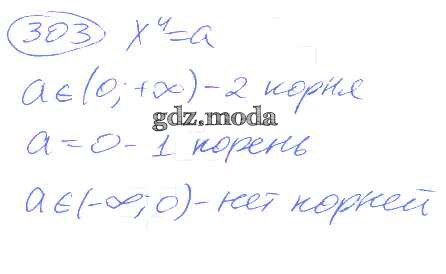 303 x⁴=a
a∈(0;+∞)-2 корня
gdz.moda
a=0-1 корень
a∈(-∞;0)-нет корней